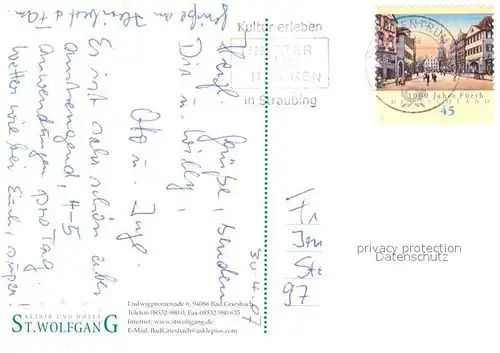 30.4.07
Herzl. Grüße, senden
Dir u. Willy,
Otto u. Inge.
Es ist sehr schön aber
anstrengend, 4-5
Anwendungen pro Tag.
Wetter wie bei Euch, super!
Grüße an
Kultur erleben
in Straubing
ZENTRUM
1000 Jahre Fürth
DEUTSCHLAND
45
Fr
St
97
privacy protection
Datenschutz
KLINIK UND HOTEL
ST.WOLFGANG
Ludwigpromenade 6, 94086 Bad Griesbach
Telefon 08532-980 0, Fax 08532-980 635
Internet: www.stwolfgang.de
E-Mail: BadGriesbach@asklepios.com